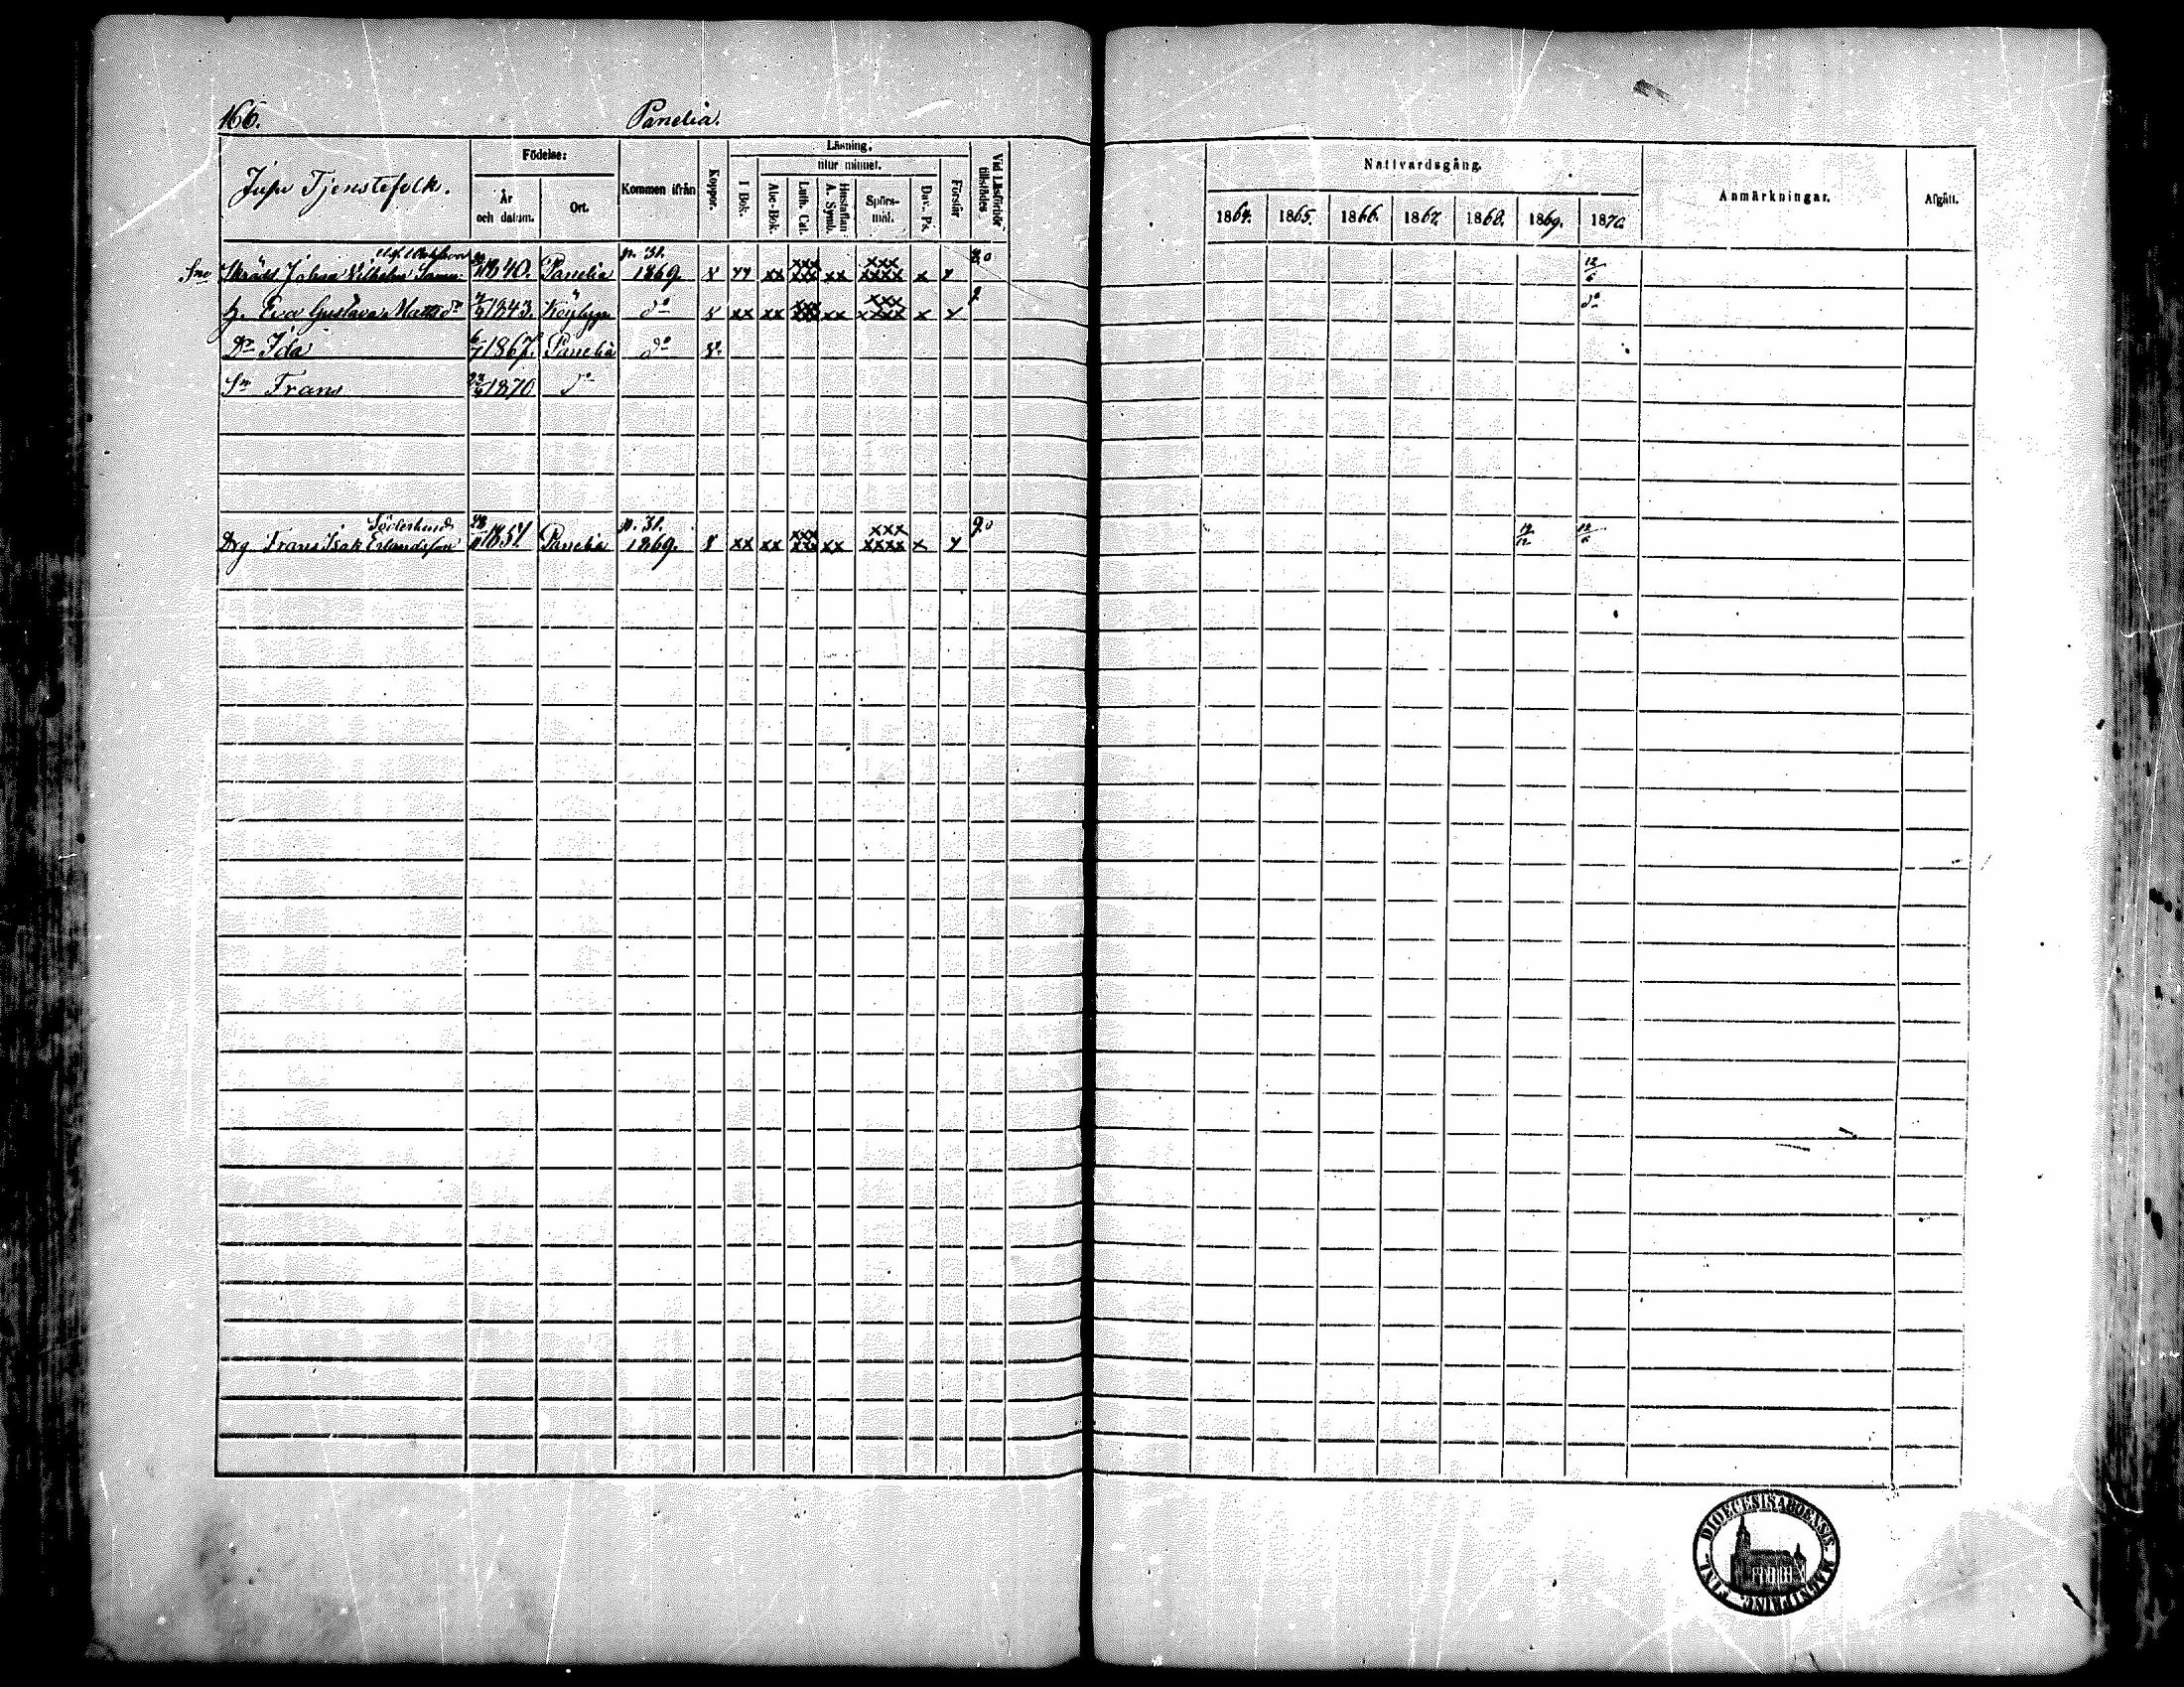 166. Panelia.
Jupu Tjenstefolk.
Födelse: År och datum. Ort.
Kommen ifrån
Koppor.
Läsning.
I Bok.
utur minnet.
Abc-Bok.
Luth. Cat.
Hustaflan A. Symb.
Spörsmål.
Dav. Ps.
Förstår
Vid Läsförhör tillstädes
Nattvardsgång.
1864. 1865. 1866. 1867. 1868. 1869. 1870.
Anmärkningar.
Afgått.
Skrädd. Johan Vilhelm 1840. Panelia p. 31. 1869. x xx xxx xxx xx xxx xxxx x 12/6
h. Eva Gustava Matts dr 1843.Köylypo do x xx xx xx xxx xxxx x do
Dr Ida 1867. Panelia do
Sn Frans 1870 do
Söderlund
Drg Frans Isak Erlandsson 1851. Panelia p. 31. 1869. xx xx xxx xxx xx xxx xxxx x 12/12 12/6
DIOECESIS ABOENSIS. MAGNI PRINC. FINL.